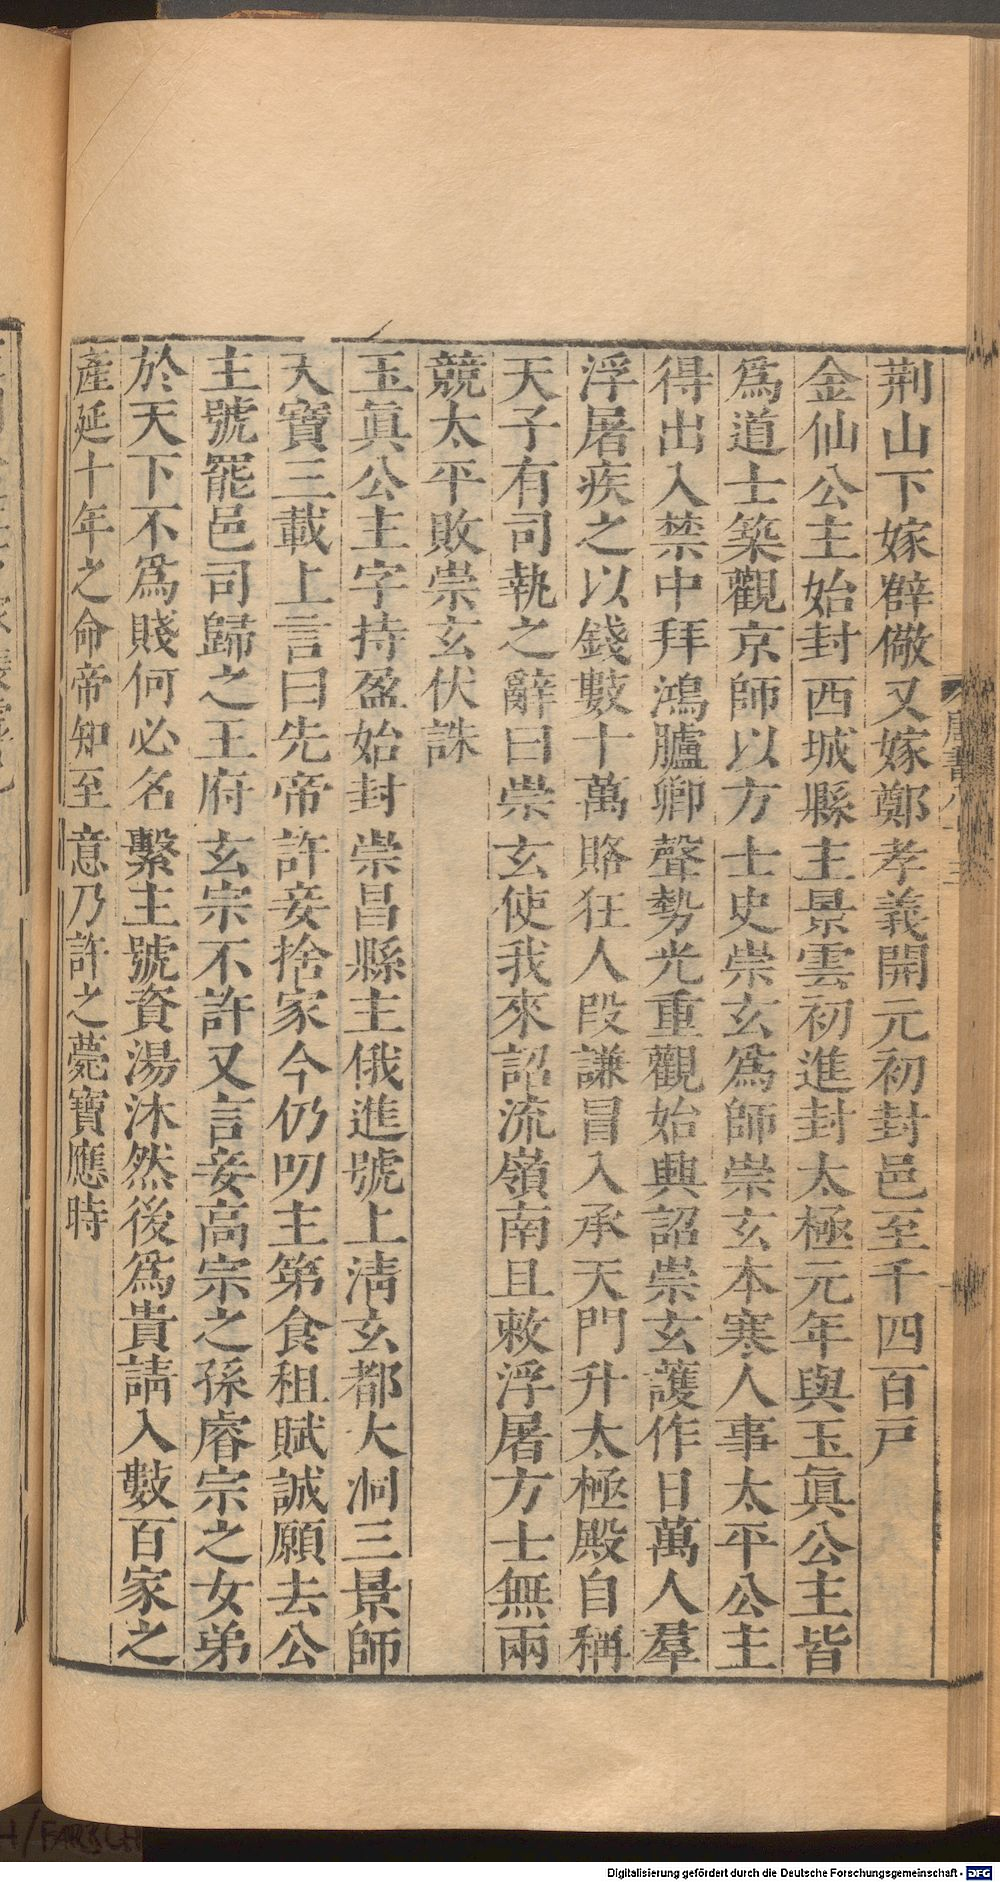 荆山下嫁薛儆又嫁鄭孝義開元初封邑至千四百戸
金仙公主始封西城縣主景雲初進封太極元年與玉眞公主皆
爲道士築觀京師以方士史崇玄爲師崇玄本寒人事太平公主
得出入禁中拜鴻臚卿聲勢光重觀始興詔崇玄護作日萬人羣
浮屠疾之以錢數十萬賂狂人段謙冒入承天門升太極殿自稱
天子有司執之辭曰崇玄使我來詔流嶺南且敕浮屠方士無兩
競太平敗崇玄伏誅
玉眞公主字持盈始封崇昌縣主俄進號上淸玄都大洞三景師
天寶三載上言曰先帝許妾捨家今仍叨主第食租賦誠願去公
主號罷邑司歸之王府玄宗不許又言妾高宗之孫睿宗之女弟
於天下不爲賤何必名繫主號資湯沐然後爲貴請入數百家之
產延十年之命帝知至意乃許之薨寶應時
唐書八十三
Digitalisierung gefördert durch die Deutsche Forschungsgemeinschaft - DFG